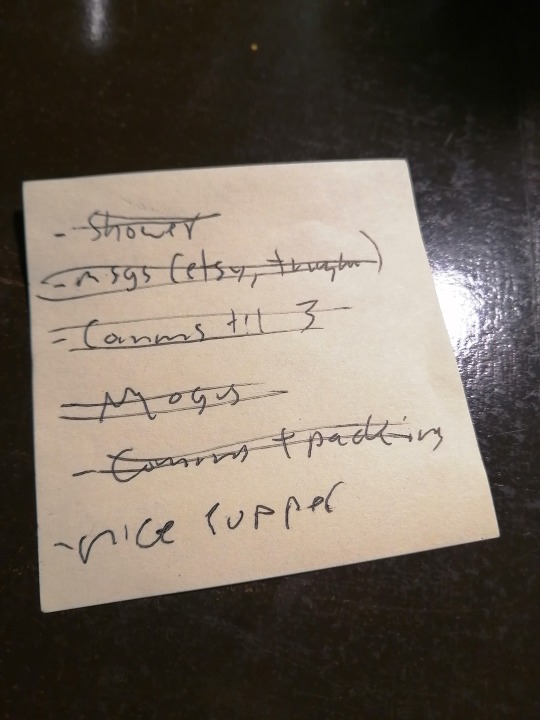 - Shower
- msgs (etsy,
- Comms til 3
- Mogus
- Comms + packing
- nice supper